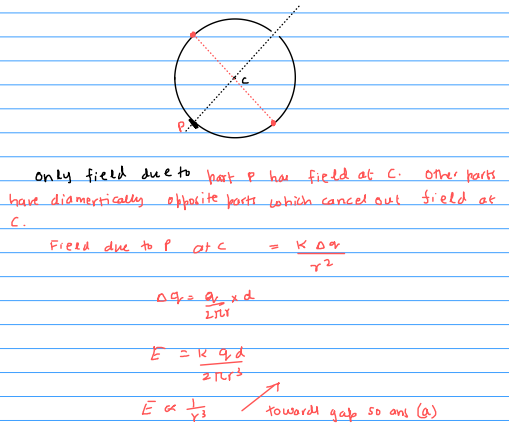 C
P
only field due to part P has field at C. Other parts
have diamertically opposite parts which cancel out field at
C.
Field due to P at C = K Δq / r²
Δq = q / 2πr × d
E = K q d / 2πr³
E ∝ 1/r³ towards gap so ans (a)